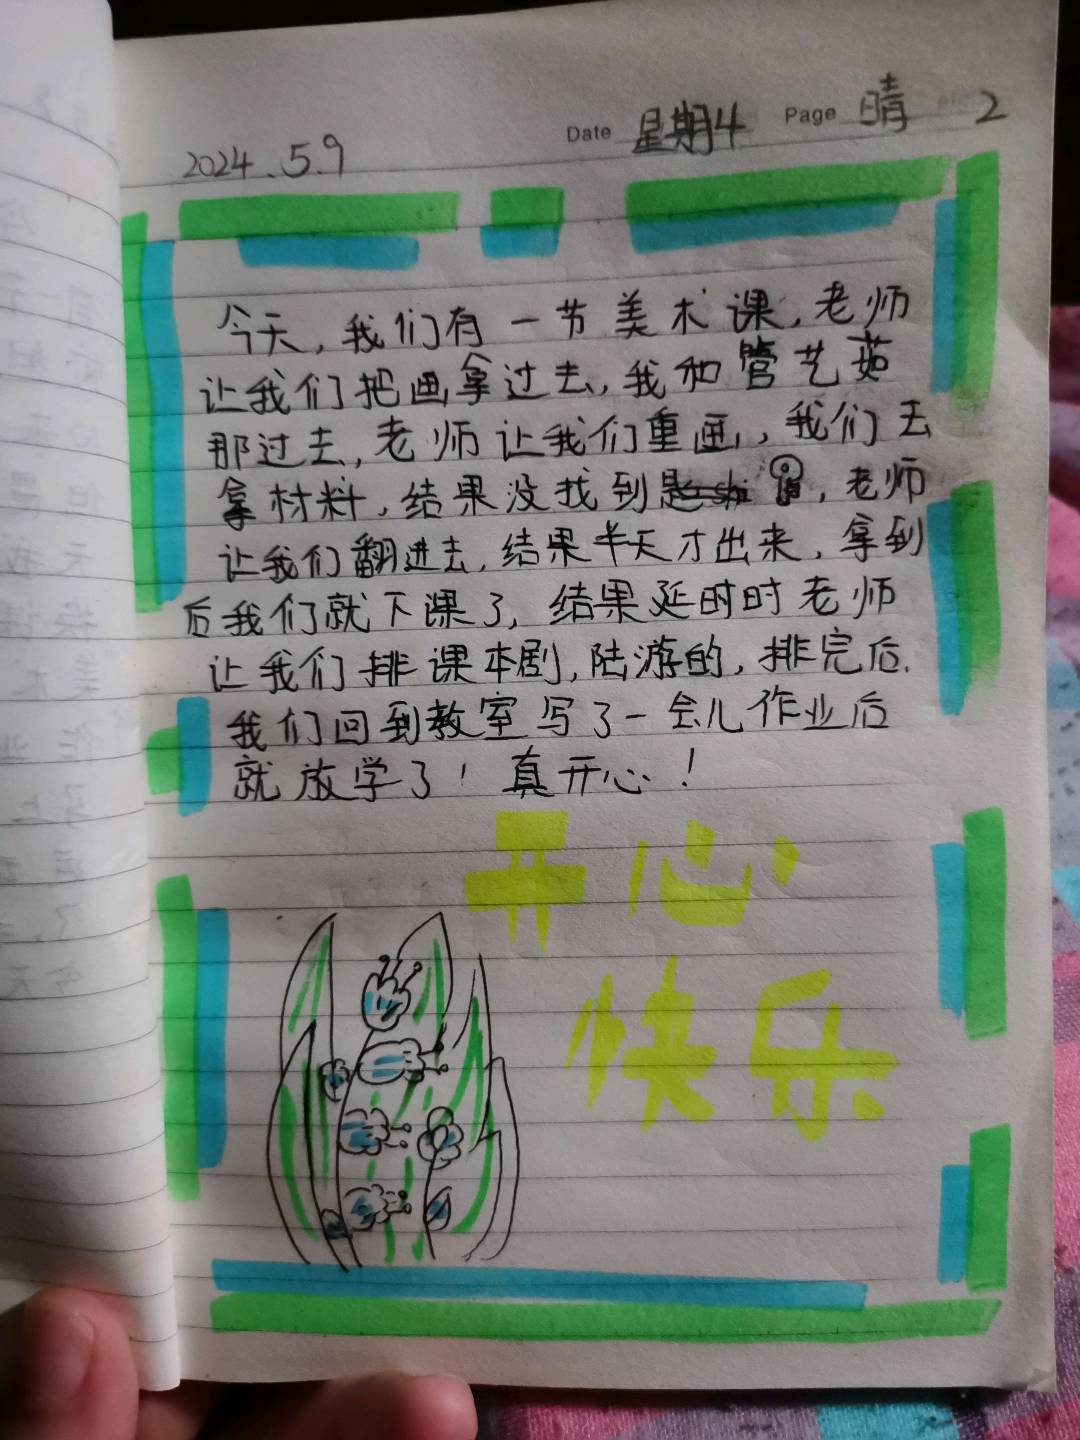 2024.5.9
Date 星期4 Page 晴 2
今天，我们有一节美术课，老师
让我们把画拿过去，我和管艺茹
那过去，老师让我们重画，我们去
拿材料，结果没找到，老师
让我们翻进去，结果半天才出来，拿到
后我们就下课了，结果延时时老师
让我们排课本剧，陆游的，排完后，
我们回到教室写了一会儿作业后
就放学了！真开心！
开心
快乐